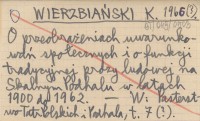 WIERZBIAŃSKI K. 1966 (?)
O przeobrażeniach uwarunko-
wań społecznych i o funkcji
tradycyjnej przy ludowej na
Skalnym Podhalu w latach
1900 do 1962. — W: Pasterst-
wo Tatr Polskich i Podhala, t. 7 (?).